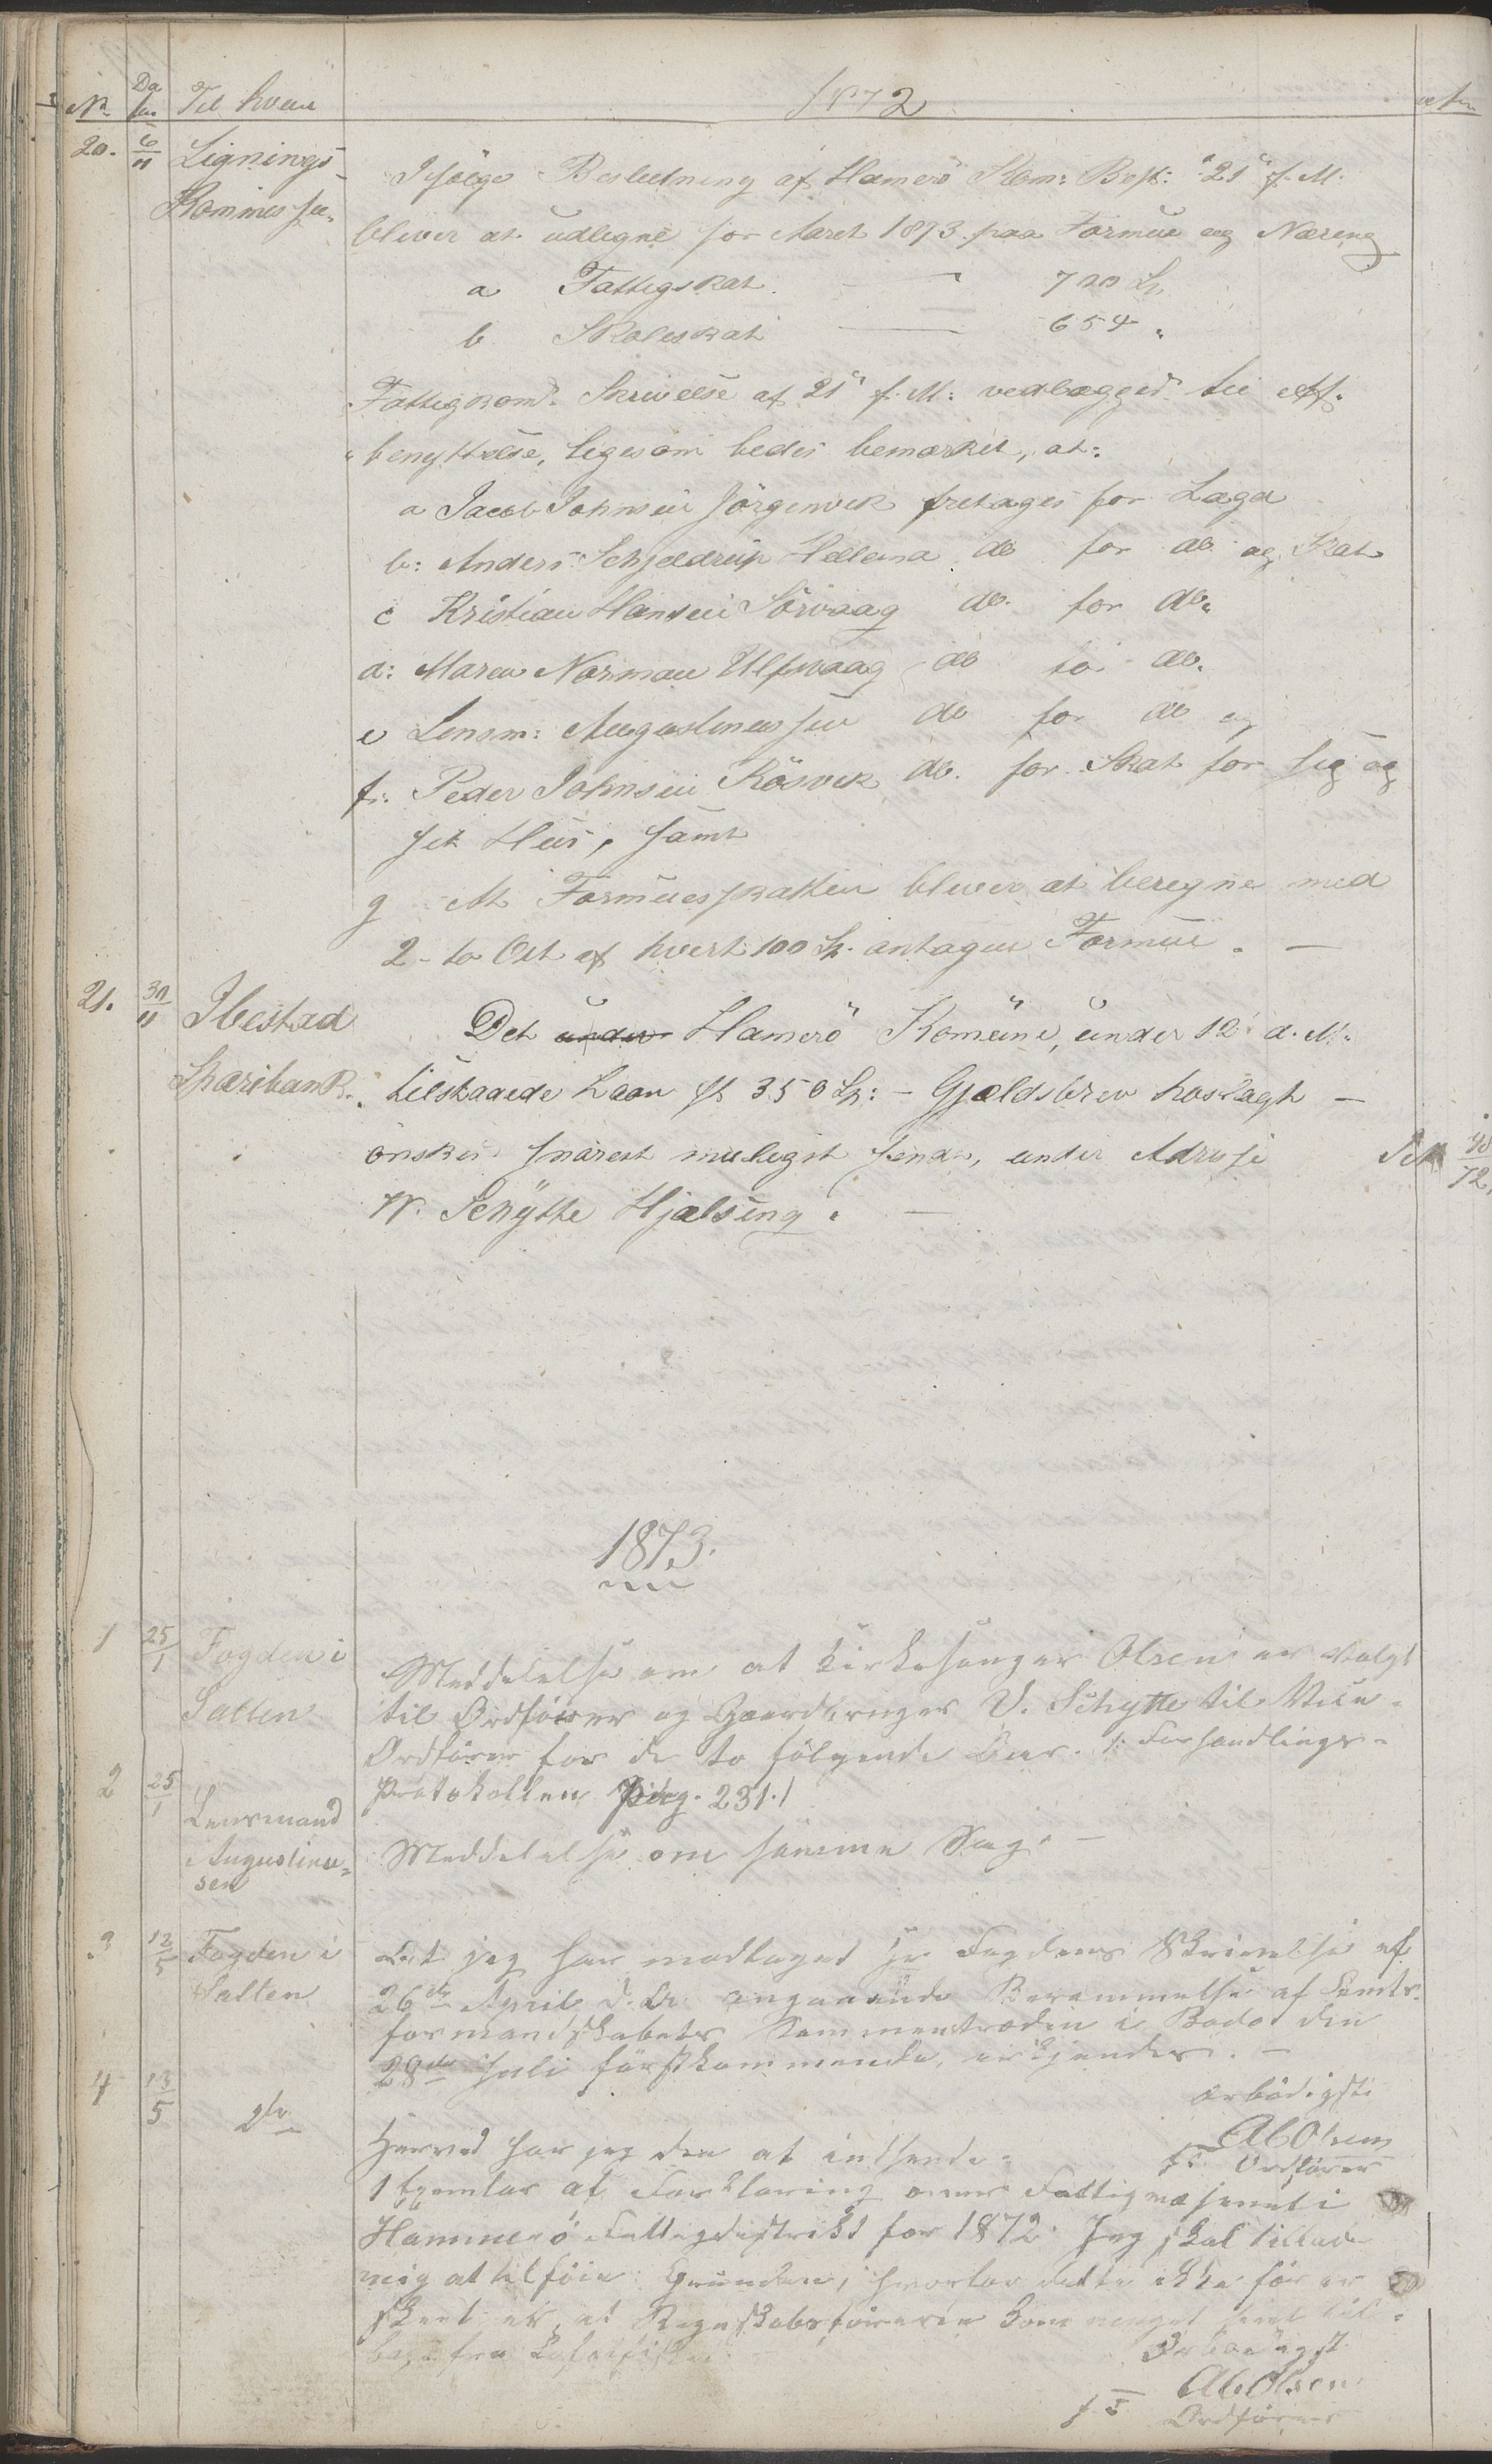 No Da tum Til hvem 1872
20. 6/11 Lignings-
Kommissi-
Ifölge Beslutning af Hamerö Kom: Best: "21" f. M.
bliver at udligne for Aaret 1873 paa Formue og Næring
a Fattigskat 720 Sp.
b. Skoleskat 654 "
Fattigkom. Skrivelse af 21" f. M: vedlægges til Af-
benyttelse, ligesom bedes bemærket, at:
a Jacob Johnsen Jörgenvik fretages for Lægd
b: Anders Schjeldrup Hellena do for do og Skat
c Kristian Hansen Sörvaag do. for do.
d: Maren Norman Ulfsvaag do for do.
e Lensm: Augustinussen do for do og
f: Peder Johnsen Rösvik do. for Skat for sig og
sit Hus, samt
g At Formuesskatten bliver at beregne med
2 - to Ort af hvert 100 Sp. antagen Formue. -
21. 30/11 Ibestad
Sparebank.
Det under Hamerö Komune, under 12' d. M.
tilstaaede Laan st 350 Sp: - Gjældsbrev hoslagt -
önskes snarest muligst sendt, under Adresse
W. Schytte Hjælsing. -
1873.
1 25/1 Fogden i
Salten
Meddelelse om at Kirkesanger Olsen er valgt
til Ordförer og Gaardbruger V. Schytte til Vice-
Ordförer for de to fölgende Aar. /: Forhandlings-
Protokollen Pag. 231./
2 25/1 Lensmand
Augustinus-
sen
Meddelelse om samme Sag. -
3 12/5 Fogden i
Salten
At jeg har modtaget Hr Fogdens Skrivelse af
26de April d. A. angaaende Berammelse af Amts-
formandskabets Sammentræden i Bodö den
28de Juli förstkommende, erkjendes. -
Ærbödigst
Ab Olsen
f. T. Ordförer
4 13/5 do
Herved har jeg den at indsende
1 Exemplar af Forklaring over Fattigvæsenet i
Hammerö Fattigdistrikt for 1872. Jeg skal tillade
mig at tilföie Grunden, hvorfor dette ikke för er
skeet er, at Regnskabsföreren kom meget seent til-
bage fra Lofotfisket.
Ærbödigst
Ab Olsen
f. T. Ordförer